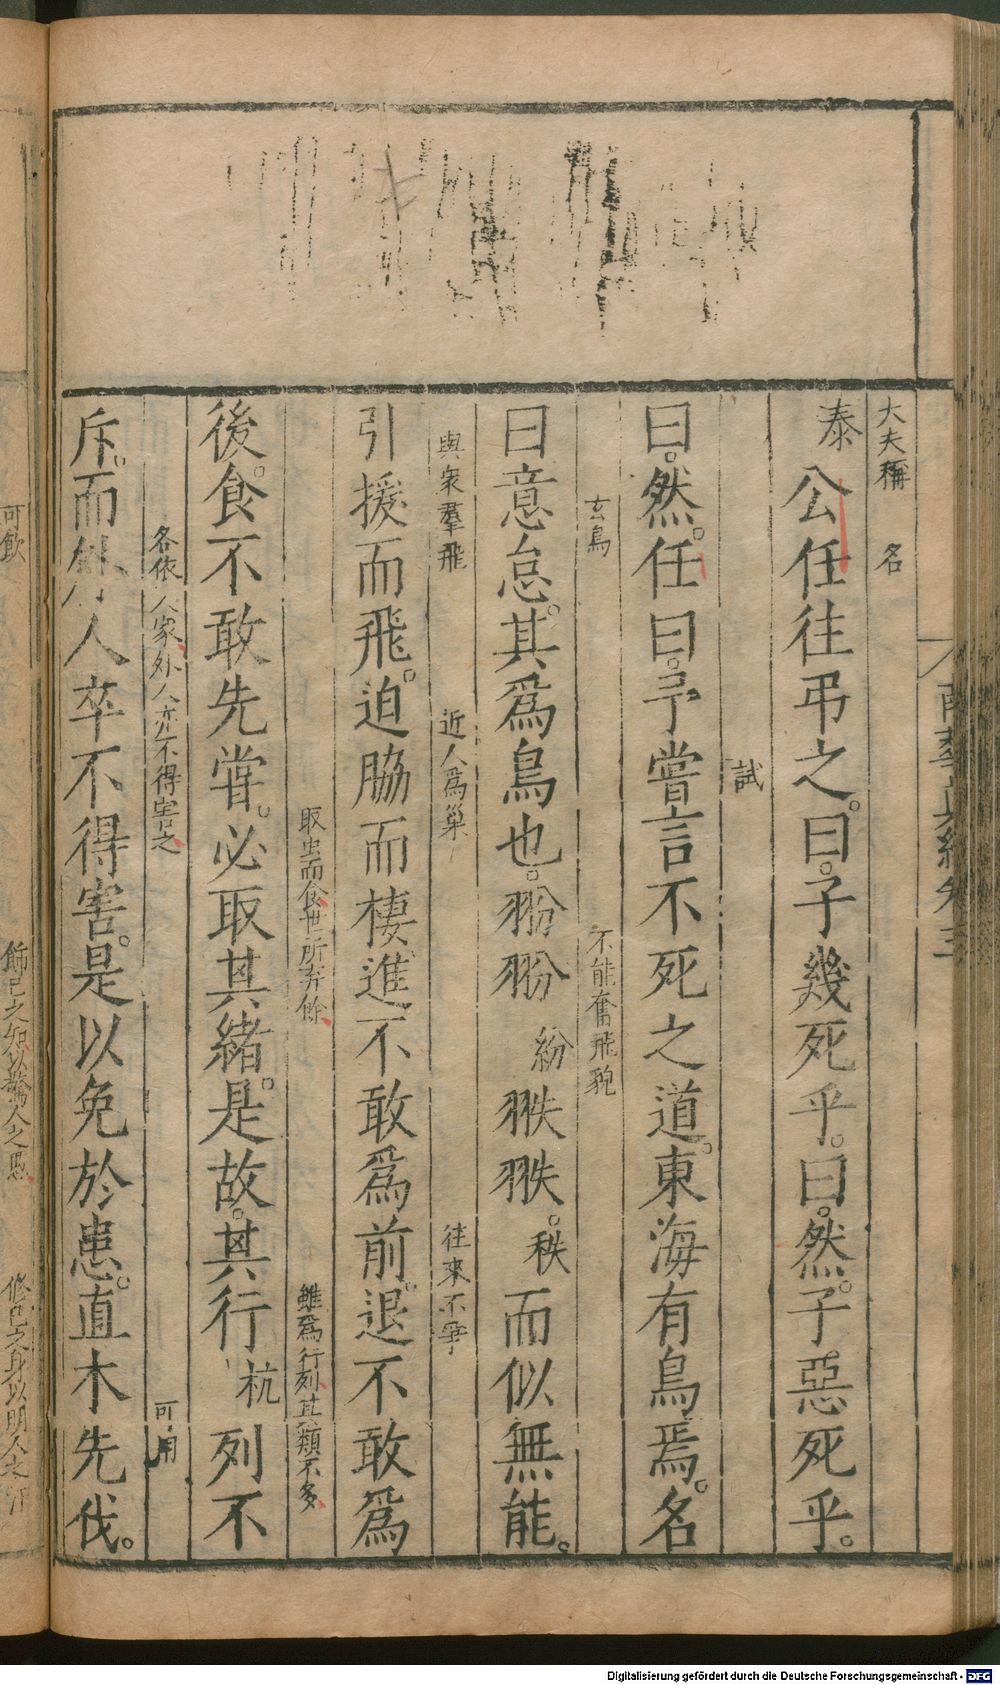 大夫稱 名
泰公任往弔之曰子幾死乎曰然子惡死乎
試
曰然任曰予嘗言不死之道東海有鳥焉名
玄鳥 不能奮飛貌
曰意怠其爲鳥也翂翂紛翐翐秩而似無能
與衆羣飛 近人爲巢 往來不爭
引援而飛迫脇而棲進不敢爲前退不敢爲
取虫而食世所弃餘 雖爲行列其類不多
後食不敢先甞必取其緒是故其行杭列不
各依人家外人亦不得害之 可用
斥而外人卒不得害是以免於患直木先伐
可飲 飾己之知以驚人之愚 修己之身以明人之汙
Digitalisierung gefördert durch die Deutsche Forschungsgemeinschaft - DFG